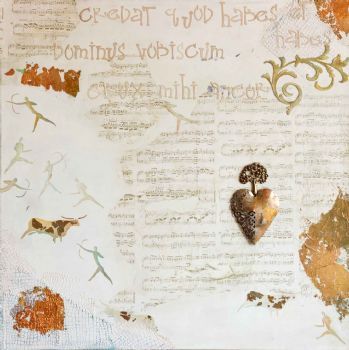 crebat quod habes et
Dominus vobiscum habes
crux mihi ancor